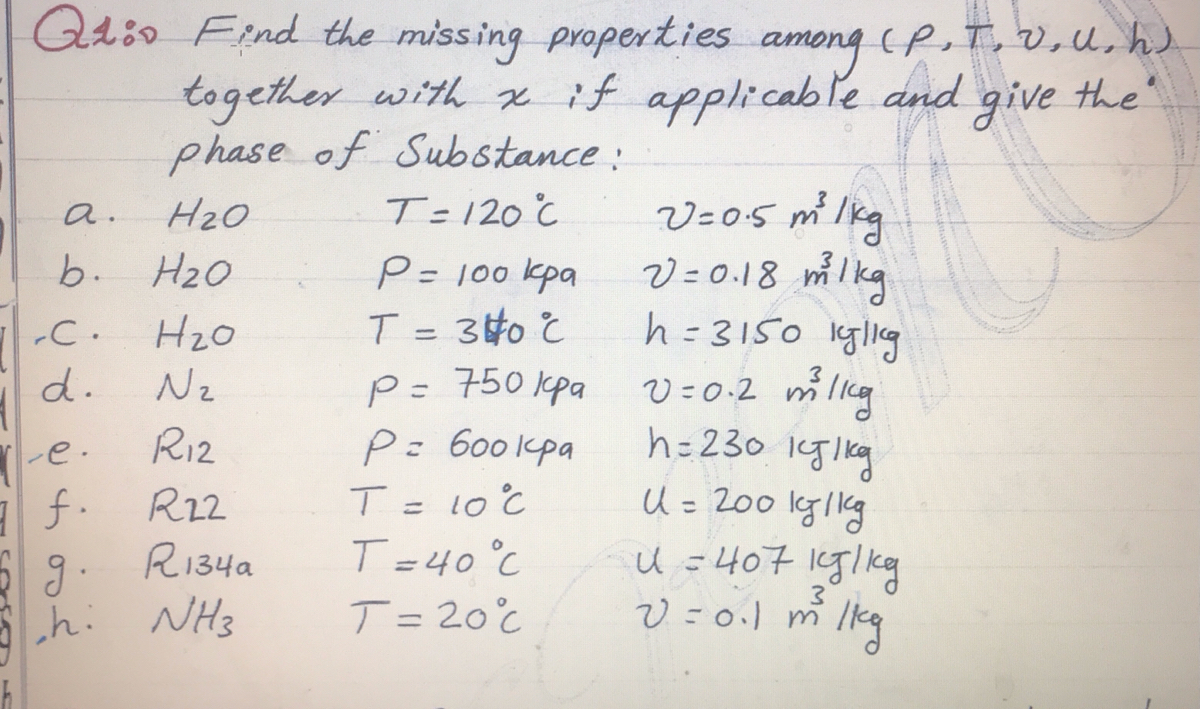 Q1: Find the missing properties among (P, T, v, u, h)
together with x if applicable and give the
phase of Substance:
a. H2O T = 120 °C v = 0.5 m³/kg
b. H2O P = 100 kpa v = 0.18 m³/kg
c. H2O T = 340 °C h = 3150 kJ/kg
d. N2 P = 750 kpa v = 0.2 m³/kg
e. R12 P = 600 kpa h = 230 kJ/kg
f. R22 T = 10 °C u = 200 kJ/kg
g. R134a T = 40 °C u = 407 kJ/kg
h: NH3 T = 20 °C v = 0.1 m³/kg